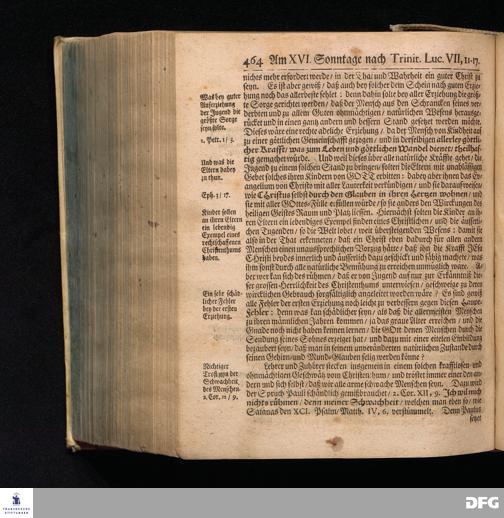 464 Am XVI. Sonntage nach Trinit. Luc. VII, 11-17.
nichts mehr erfordert werde/ in der That und Wahrheit ein guter Christ zu
seyn. Es ist aber gewiß/ daß auch bey solcher dem Schein nach guten Erzie-
hung noch das allerbeste fehlet: denn dahin solte bey aller Erziehung die gröş-
te Sorge gerichtet werden/ daß der Mensch aus den Schrancken seines ver-
derbten und zu allem Guten ohnmächtigen/ natürlichen Wesens herausge-
rücket und in einen gantz andern und bessern Stand gesetzet werden möchte.
Dieses wäre eine rechte adeliche Erziehung/ da der Mensch von Kindheit auf
zu einer göttlichen Gemeinschafft gezogen/ und in derselbigen allerley göttli-
cher Krafft/ was zum Leben und göttlichen Wandel dienet/ theilhaf-
tig gemachet würde. Und weil dieses über alle natürliche Kräffte gehet/ die
Jugend zu einem solchen Stand zu bringen/ solten die Eltern mit unablässigen
Gebet solches ihren Kindern von GOTT erbitten: dabey aber ihnen das Ev-
angelium von Christo mit aller Lauterkeit verkündigen/ und sie darauf weisen/
wie Christus selbst durch den Glauben in ihren Hertzen wohnen/ und
sie mit aller Gottes-Fülle erfüllen würde/ so sie anders den Würckungen des
heiligen Geistes Raum und Platz liessen. Hiernächst solten die Kinder an ih-
ren Eltern ein lebendiges Exempel finden eines Christlichen/ und die äusserli-
chen Tugenden/ so die Welt lobet/ weit übersteigenden Wesens: damit sie
also in der That erkenneten/ daß ein Christ eben dadurch für allen andern
Menschen einen unaussprechlichen Vorzug hätte/ daß ihn die Krafft JEsu
Christi beydes innerlich und äusserlich dazu geschickt und fähig machete/ was
ihm sonst durch alle natürliche Bemühung zu erreichen unmüglich ware. A-
ber wer kan sich des rühmen/ daß er von Jugend auf nur zur Erkänntniß die-
ser grossen Herrlichkeit des Christenthums unterwiesen/ geschweige zu deren
würcklichen Gebrauch sorgfältiglich angeleitet worden wäre? Es sind gewiß
alle Fehler der ersten Erziehung noch leicht zu verbessern gegen diesen Haupt-
Fehler: denn was kan schädlicher seyn/ als daß die allermeisten Menschen
zu ihren männlichen Jahren kommen/ ja das graue Alter erreichen/ und die
Gnade noch nicht haben kennen lernen/ die GOtt denen Menschen durch die
Sendung seines Sohnes erzeiget hat/ und dazu mit einer eitelen Einbildung
bezaubert seyn/ daß man in seinem unveränderten natürlichen Zustande durch
seinen Gehirn- und Mund-Glauben selig werden könne?
Lehrer und Zuhörer stecken insgemein in einem solchen krafftlosen und
ohnmächtigen Geschwätz vom Christenthum/ und tröstet immer einer den an-
dern und sich selbst/ daß wir alle arme schwache Menschen seyn. Dazu wird
der Spruch Pauli schändlich gemißbrauchet/ 2. Cor. XII, 9. Ich wil mich
nichts rühmen/ denn meiner Schwachheit/ welchen man eben so/ wie
Satanas den XCI. Psalm/ Matth. IV, 6. verstümmelt. Denn Paulus
setzet
Was bey guter
Auferziehung
der Jugend die
größte Sorge
seyn solte.
2. Petr. 1/ 3.
Und was die
Eltern dabey
zu thun.
Eph. 3/ 17.
Kinder sollen
an ihren Eltern
ein lebendig
Exempel eines
rechtschaffenen
Christenthums
haben.
Ein sehr schäd-
licher Fehler
bey der ersten
Erziehung.
Nichtiger
Trost von der
Schwachheit
des Menschen.
2. Cor. 12/ 9.
FRANCKESCHE
STIFTUNGEN
DFG